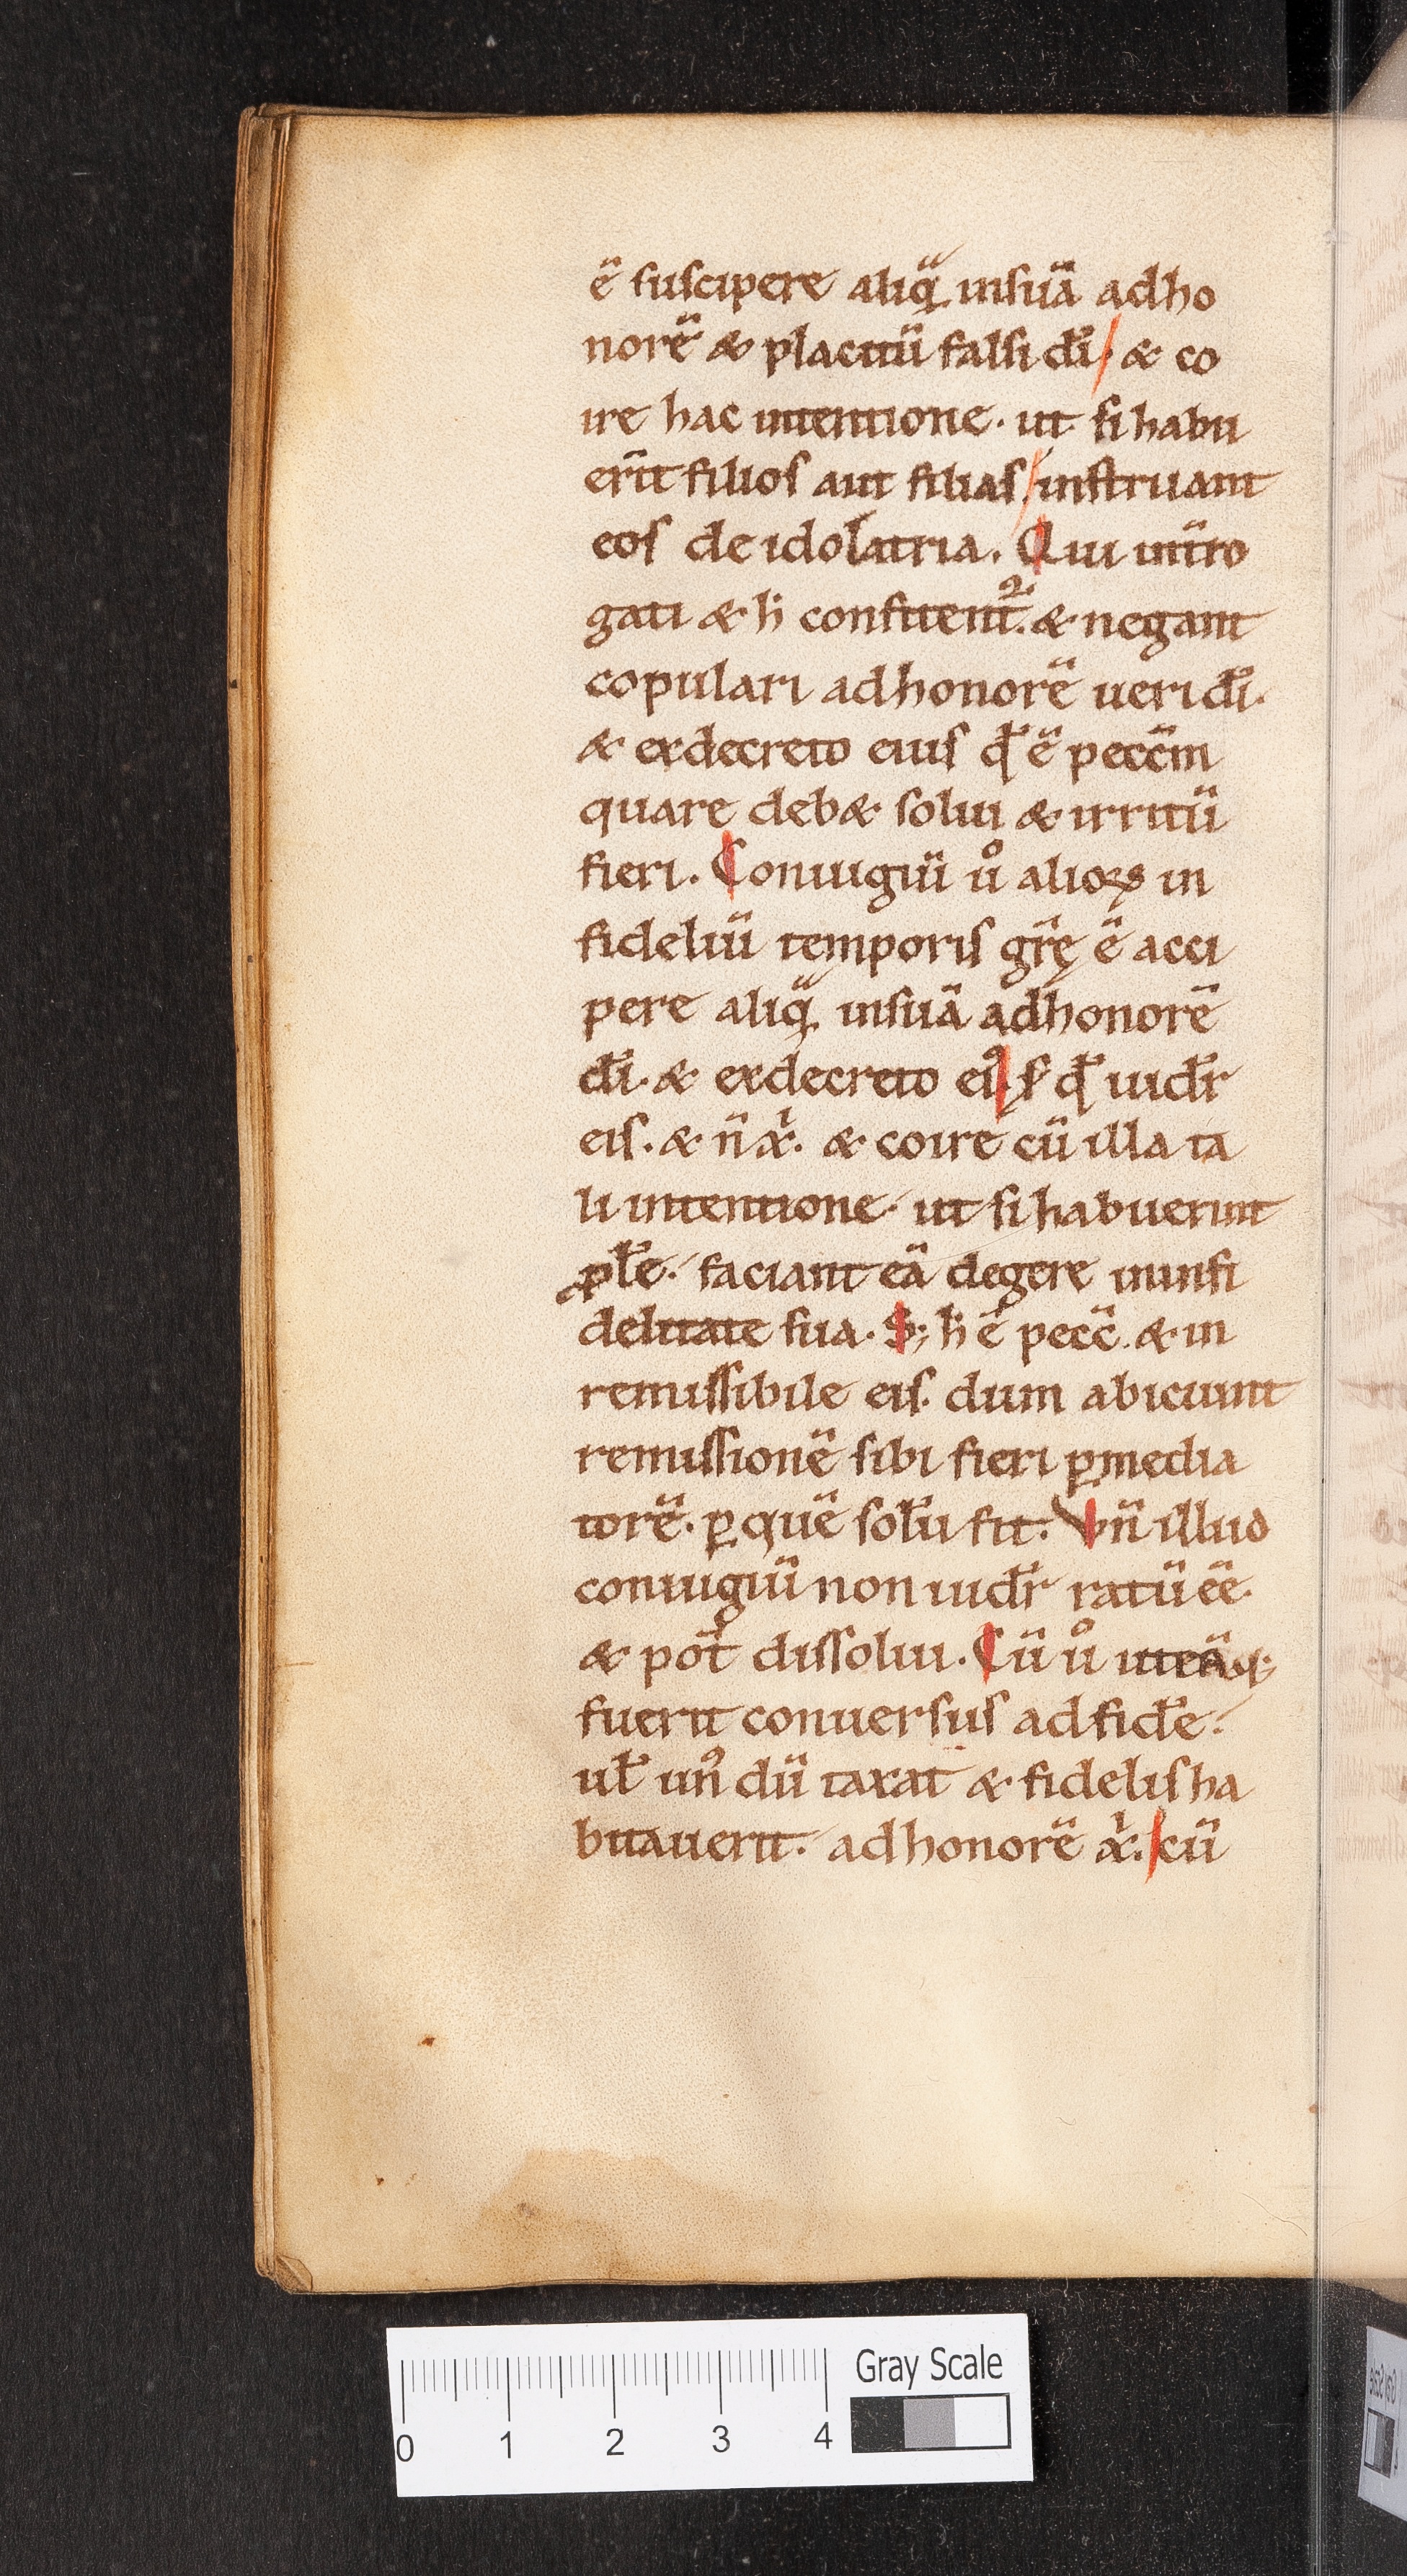 ē suscipere aliqͣ̄ insuā adho
norē & placitū falsi dī. & co
ire hac intentione. ut si habu
erīt filios aut filias. instruant
eos de idolatria. Qui int̄ro
gati & h̄ confitent᷑. & negant
copulari adhonorē ueri dī.
& exdecreto eius qđ ē peccm̄
quare deb& solui & irritū
fieri. Coniugiū ůo alioꝝ in
fideliū temporis gr̄ę ē acci
pere aliqͣ̄ insuā adhonorē
dī. & exdecreto eiꝰ. sic̄ qđ uidr̄
eis. & n̄ xͥ. & coire cū illa ta
li intentione. ut si habuerint
ꝓlē. faciant eā degere ininfi
delitate sua. S; h̄ ē pecc̄. & in
remissibile eis. dum abiciunt
remissionē sibi fieri ꝑmedia
torē. ꝑ quē solū fit. Vn̄ illud
coniugiū non uidr̄ ratū eē.
& pōt dissolui. Cū uͦ ut̄q;
fuerit conuersus ad fidē.
ul̄ unꝰ dū taxat & fidelis ha
bitauerit. adhonorē xͥ. cū
0 1 2 3 4
Gray Scale